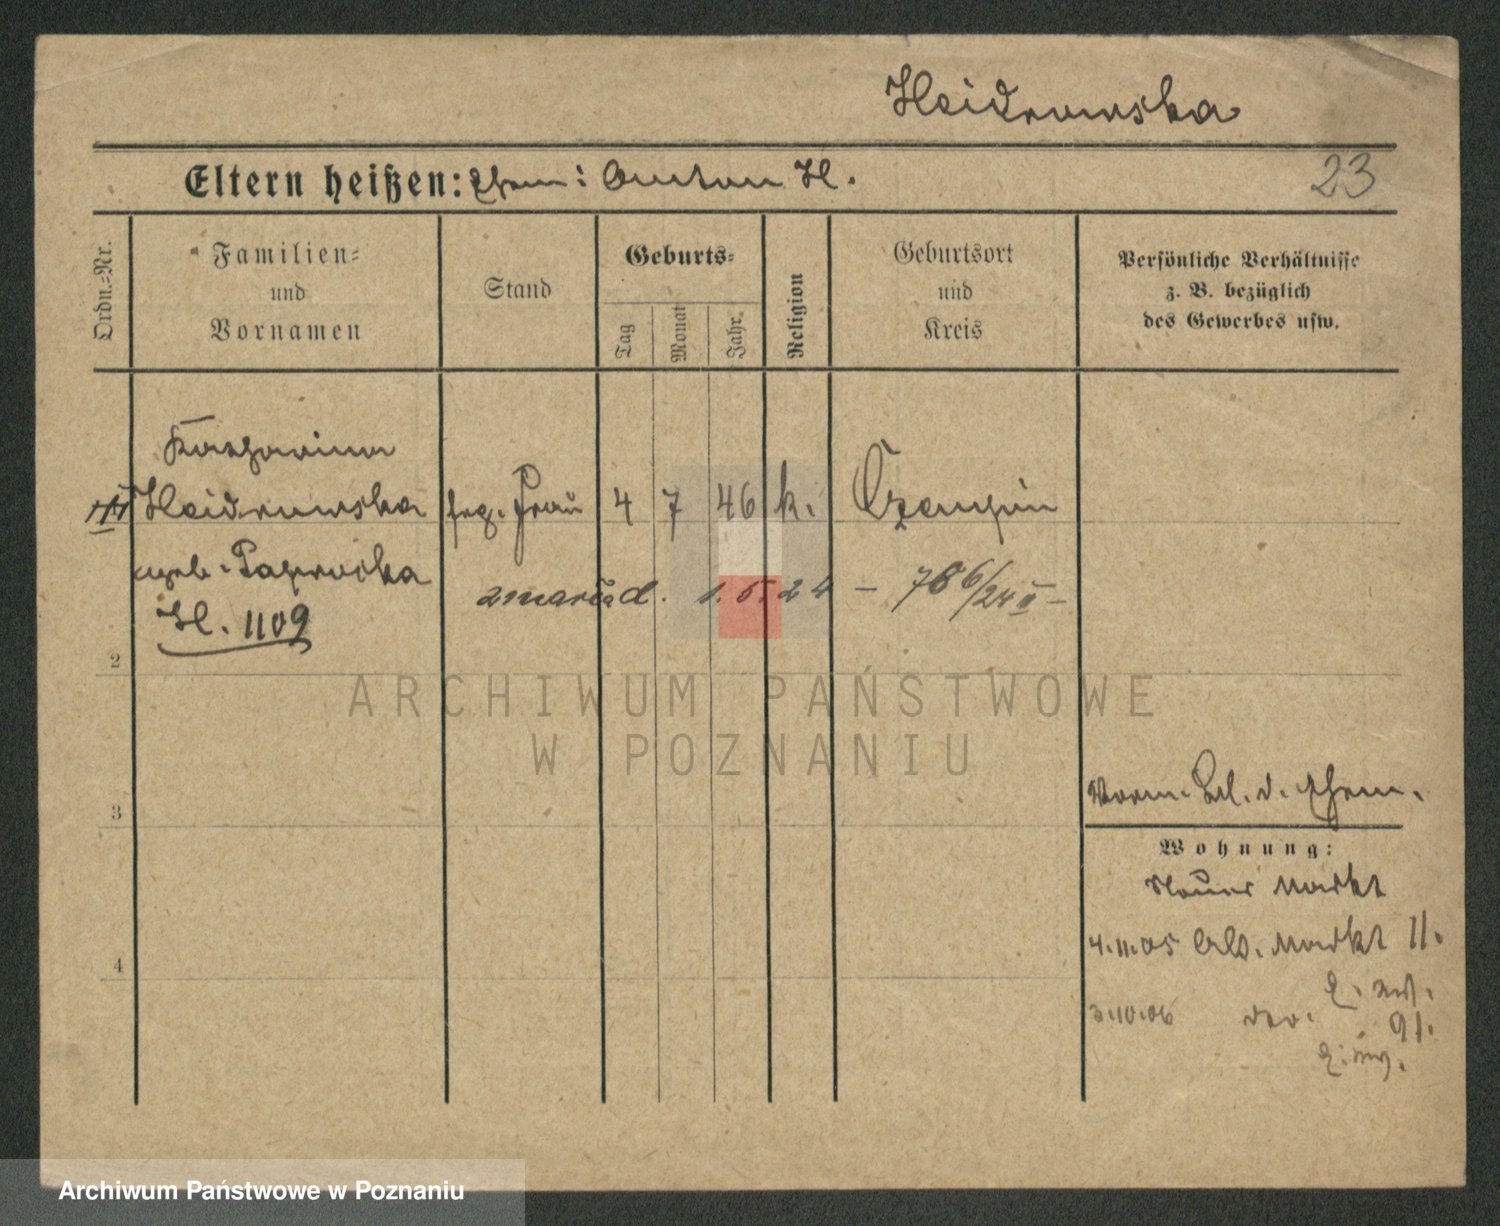 Heidrowska
23
Eltern heißen: Ehem: Anton H.
Ordn.-Nr.
Familien-
und
Vornamen
Stand
Geburts-
Tag
Monat
Jahr.
Religion
Geburtsort
und
Kreis
Persönliche Verhältnisse
z. B. bezüglich
des Gewerbes usw.
Katharina
Heidrowska
geb. Paprocka
H. 1109
Frau
4
7
46
k.
zmarła d. 1.5.24 - 786/24 II -
2
3
4
Vorm. Bl. d. Ehem.
Wohnung:
Neuer Markt
4.11.05 Alt. Markt 11.
3.10.06 91.
ARCHIWUM PAŃSTWOWE
W POZNANIU
Archiwum Państwowe w Poznaniu